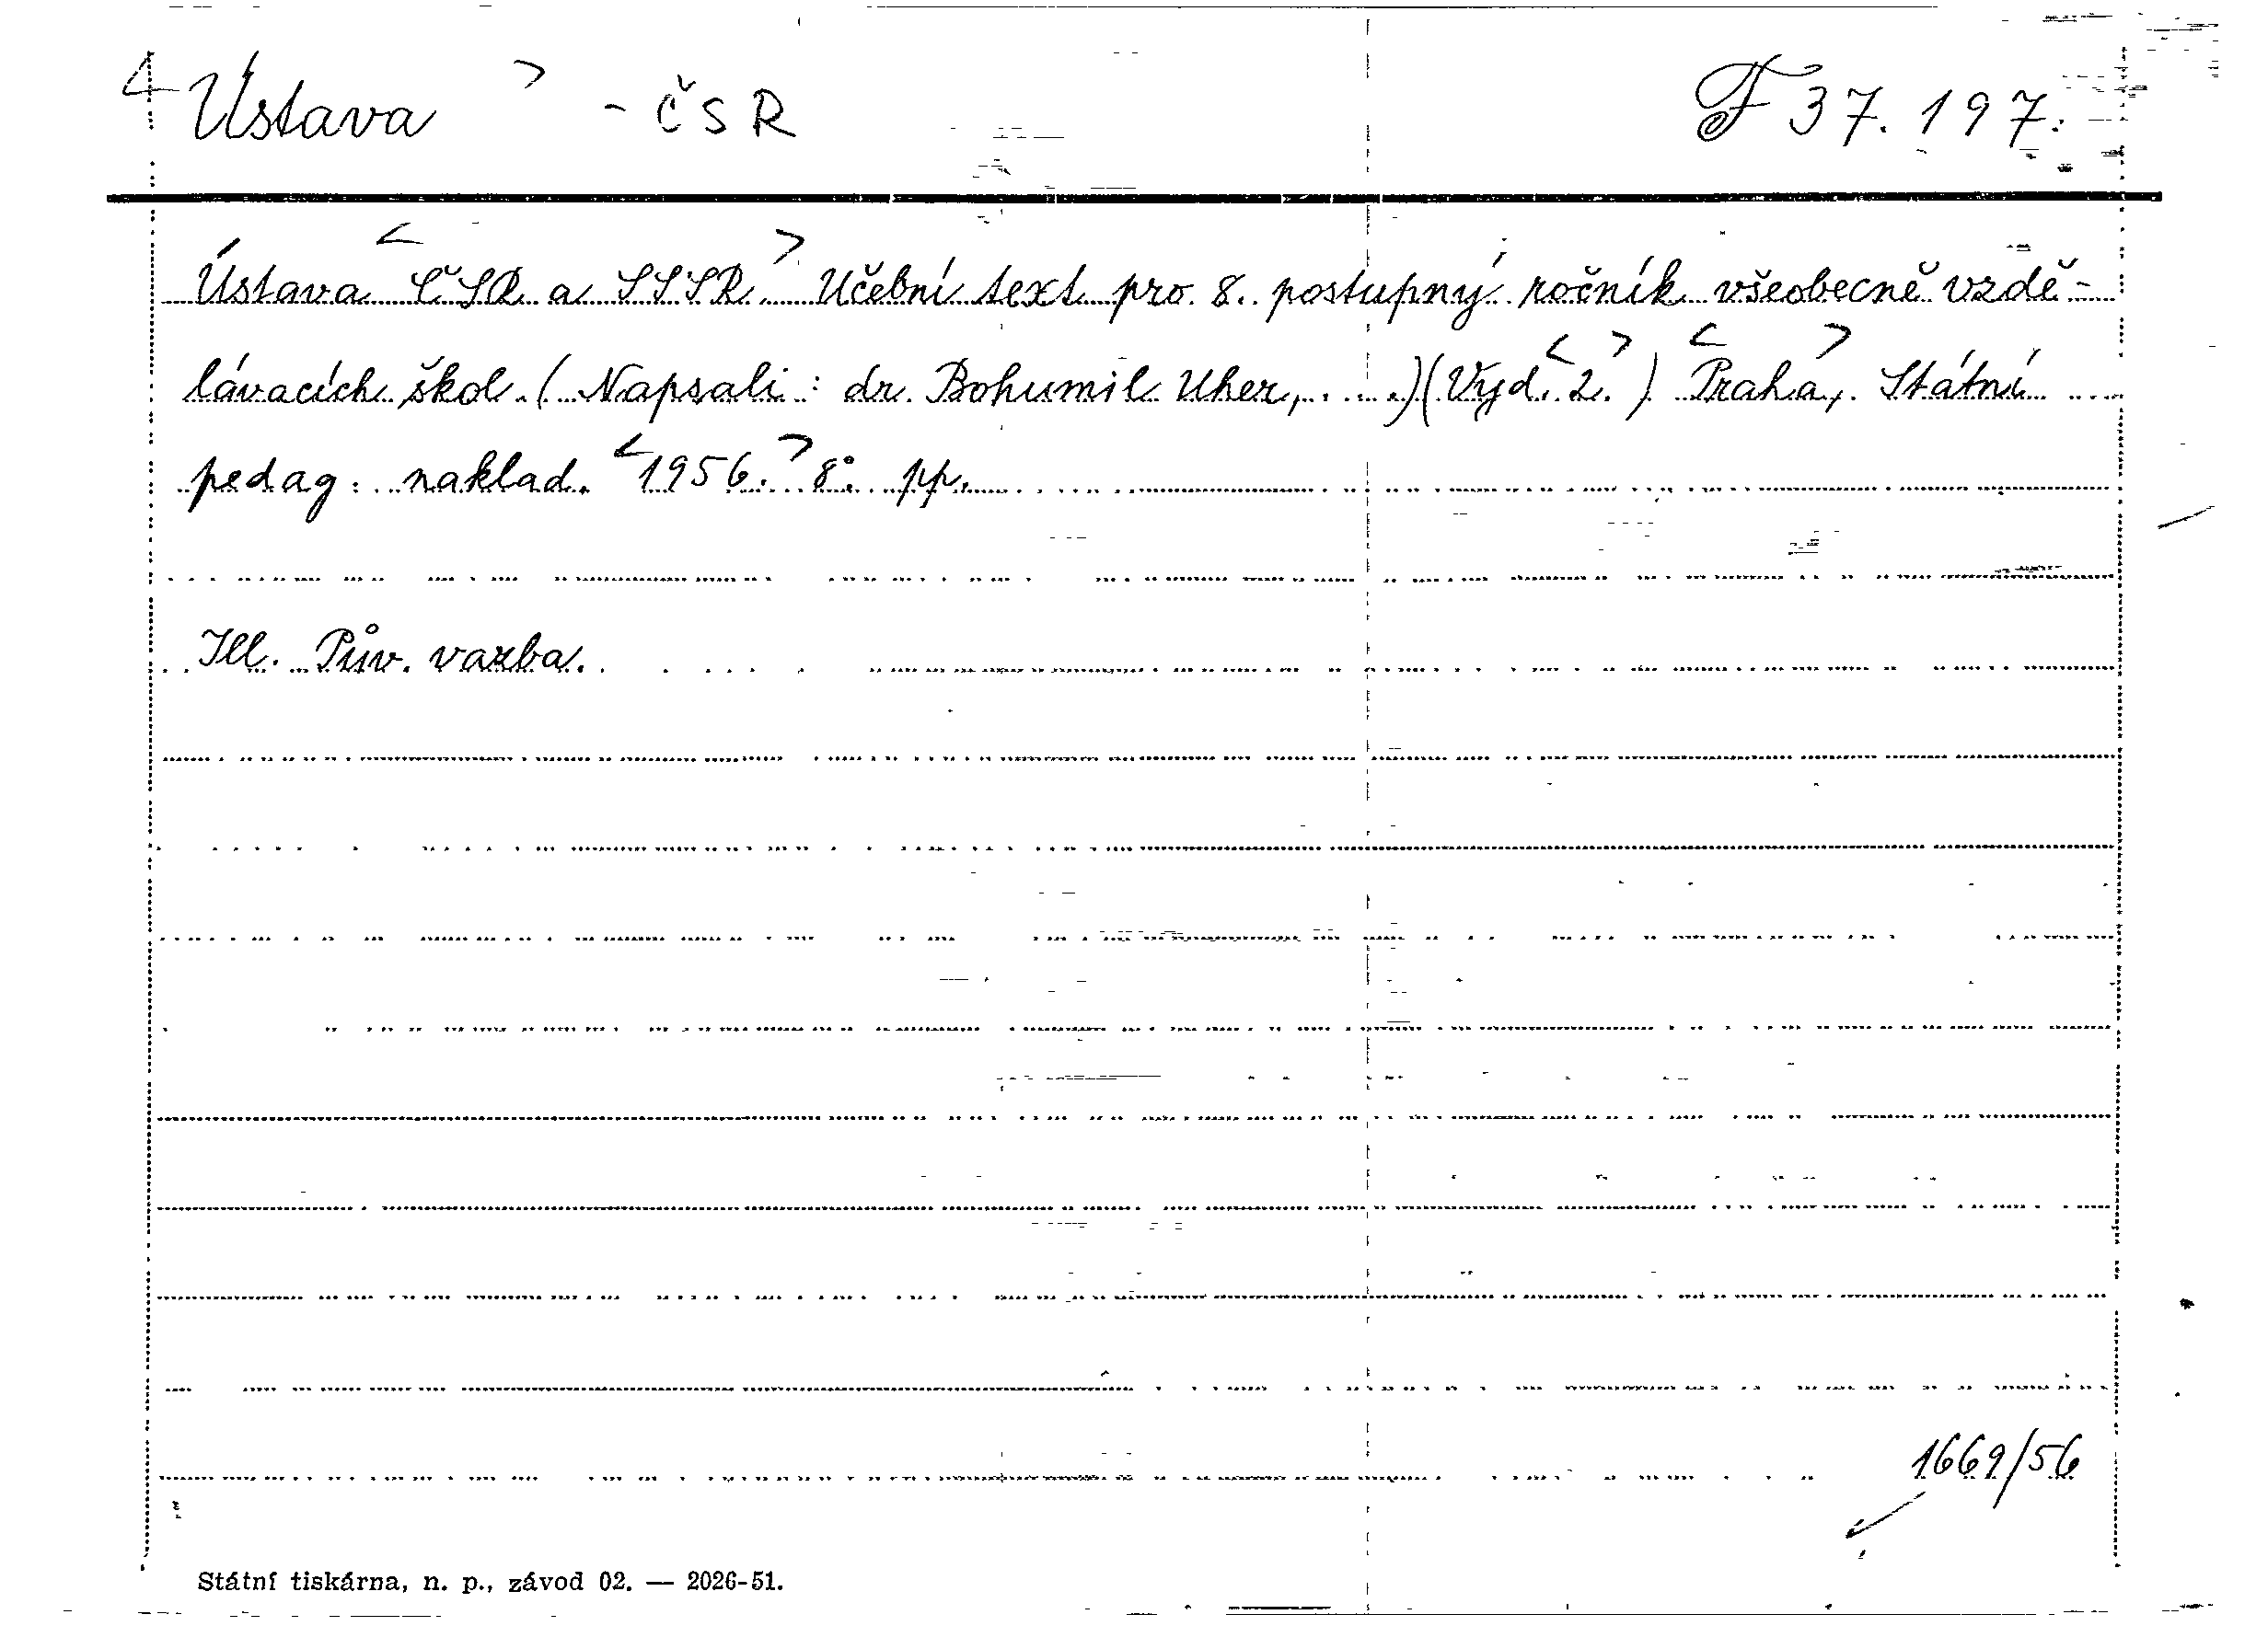 <Ústava> - ČSR F 37.197.
Ústava <ČSR a SSSR.> Učební text pro 8. postupný ročník všeobecně vzdě-
lávacích škol. (Napsali: dr. Bohumil Uher, . . .)(Vyd. <2.>) <Praha>, Státní
pedag. naklad. <1956.> 8°. pp.
Ill. Pův. vazba.
1669/56
Státní tiskárna, n. p., závod 02. — 2026-51.